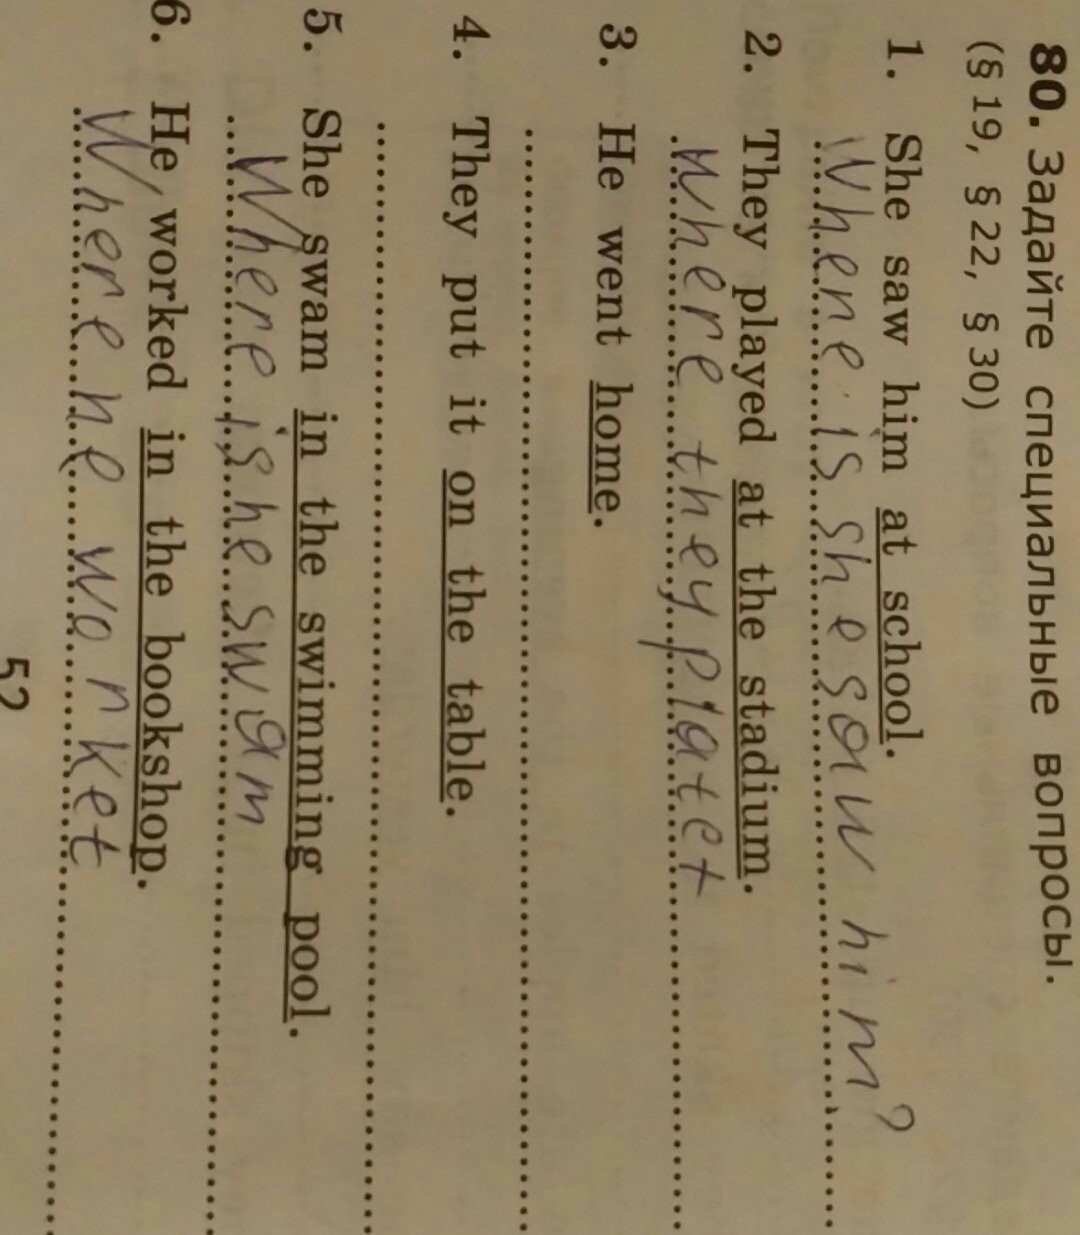 80. Задайте специальные вопросы.
(§ 19, § 22, § 30)
1. She saw him at school.
Where is she saw him?
2. They played at the stadium.
Where they platet
3. He went home.
4. They put it on the table.
5. She swam in the swimming pool.
Where is she swam
6. He worked in the bookshop.
Where he worket
52